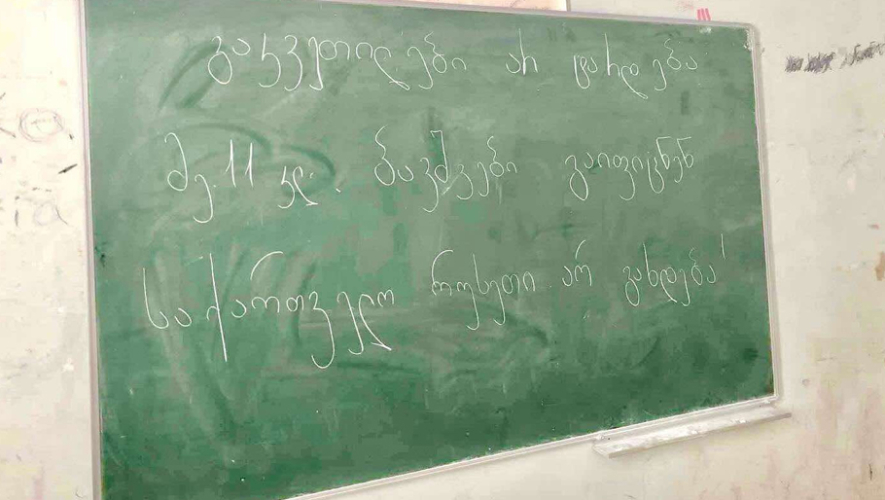 გაკვეთილები არ ტარდება
მე.11 კლ. ბავშვები გაიფიცნენ
საქართველო რუსეთი არ გახდება!